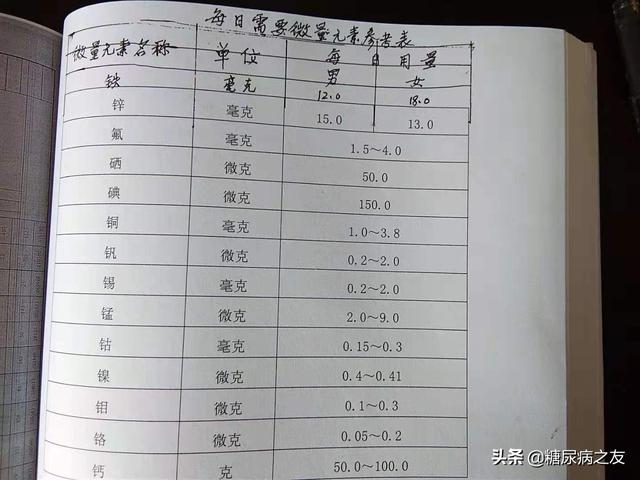 每日需要微量元素参考表
微量元素名称 单位 每日用量
男 女
铁 毫克 12.0 18.0
锌 毫克 15.0 13.0
氟 毫克 1.5～4.0
硒 微克 50.0
碘 微克 150.0
铜 毫克 1.0～3.8
钒 微克 0.2～2.0
锡 毫克 0.2～2.0
锰 微克 2.0～9.0
钴 毫克 0.15～0.3
镍 微克 0.4～0.41
钼 微克 0.1～0.3
铬 微克 0.05～0.2
钙 克 50.0～100.0
头条@糖尿病之友